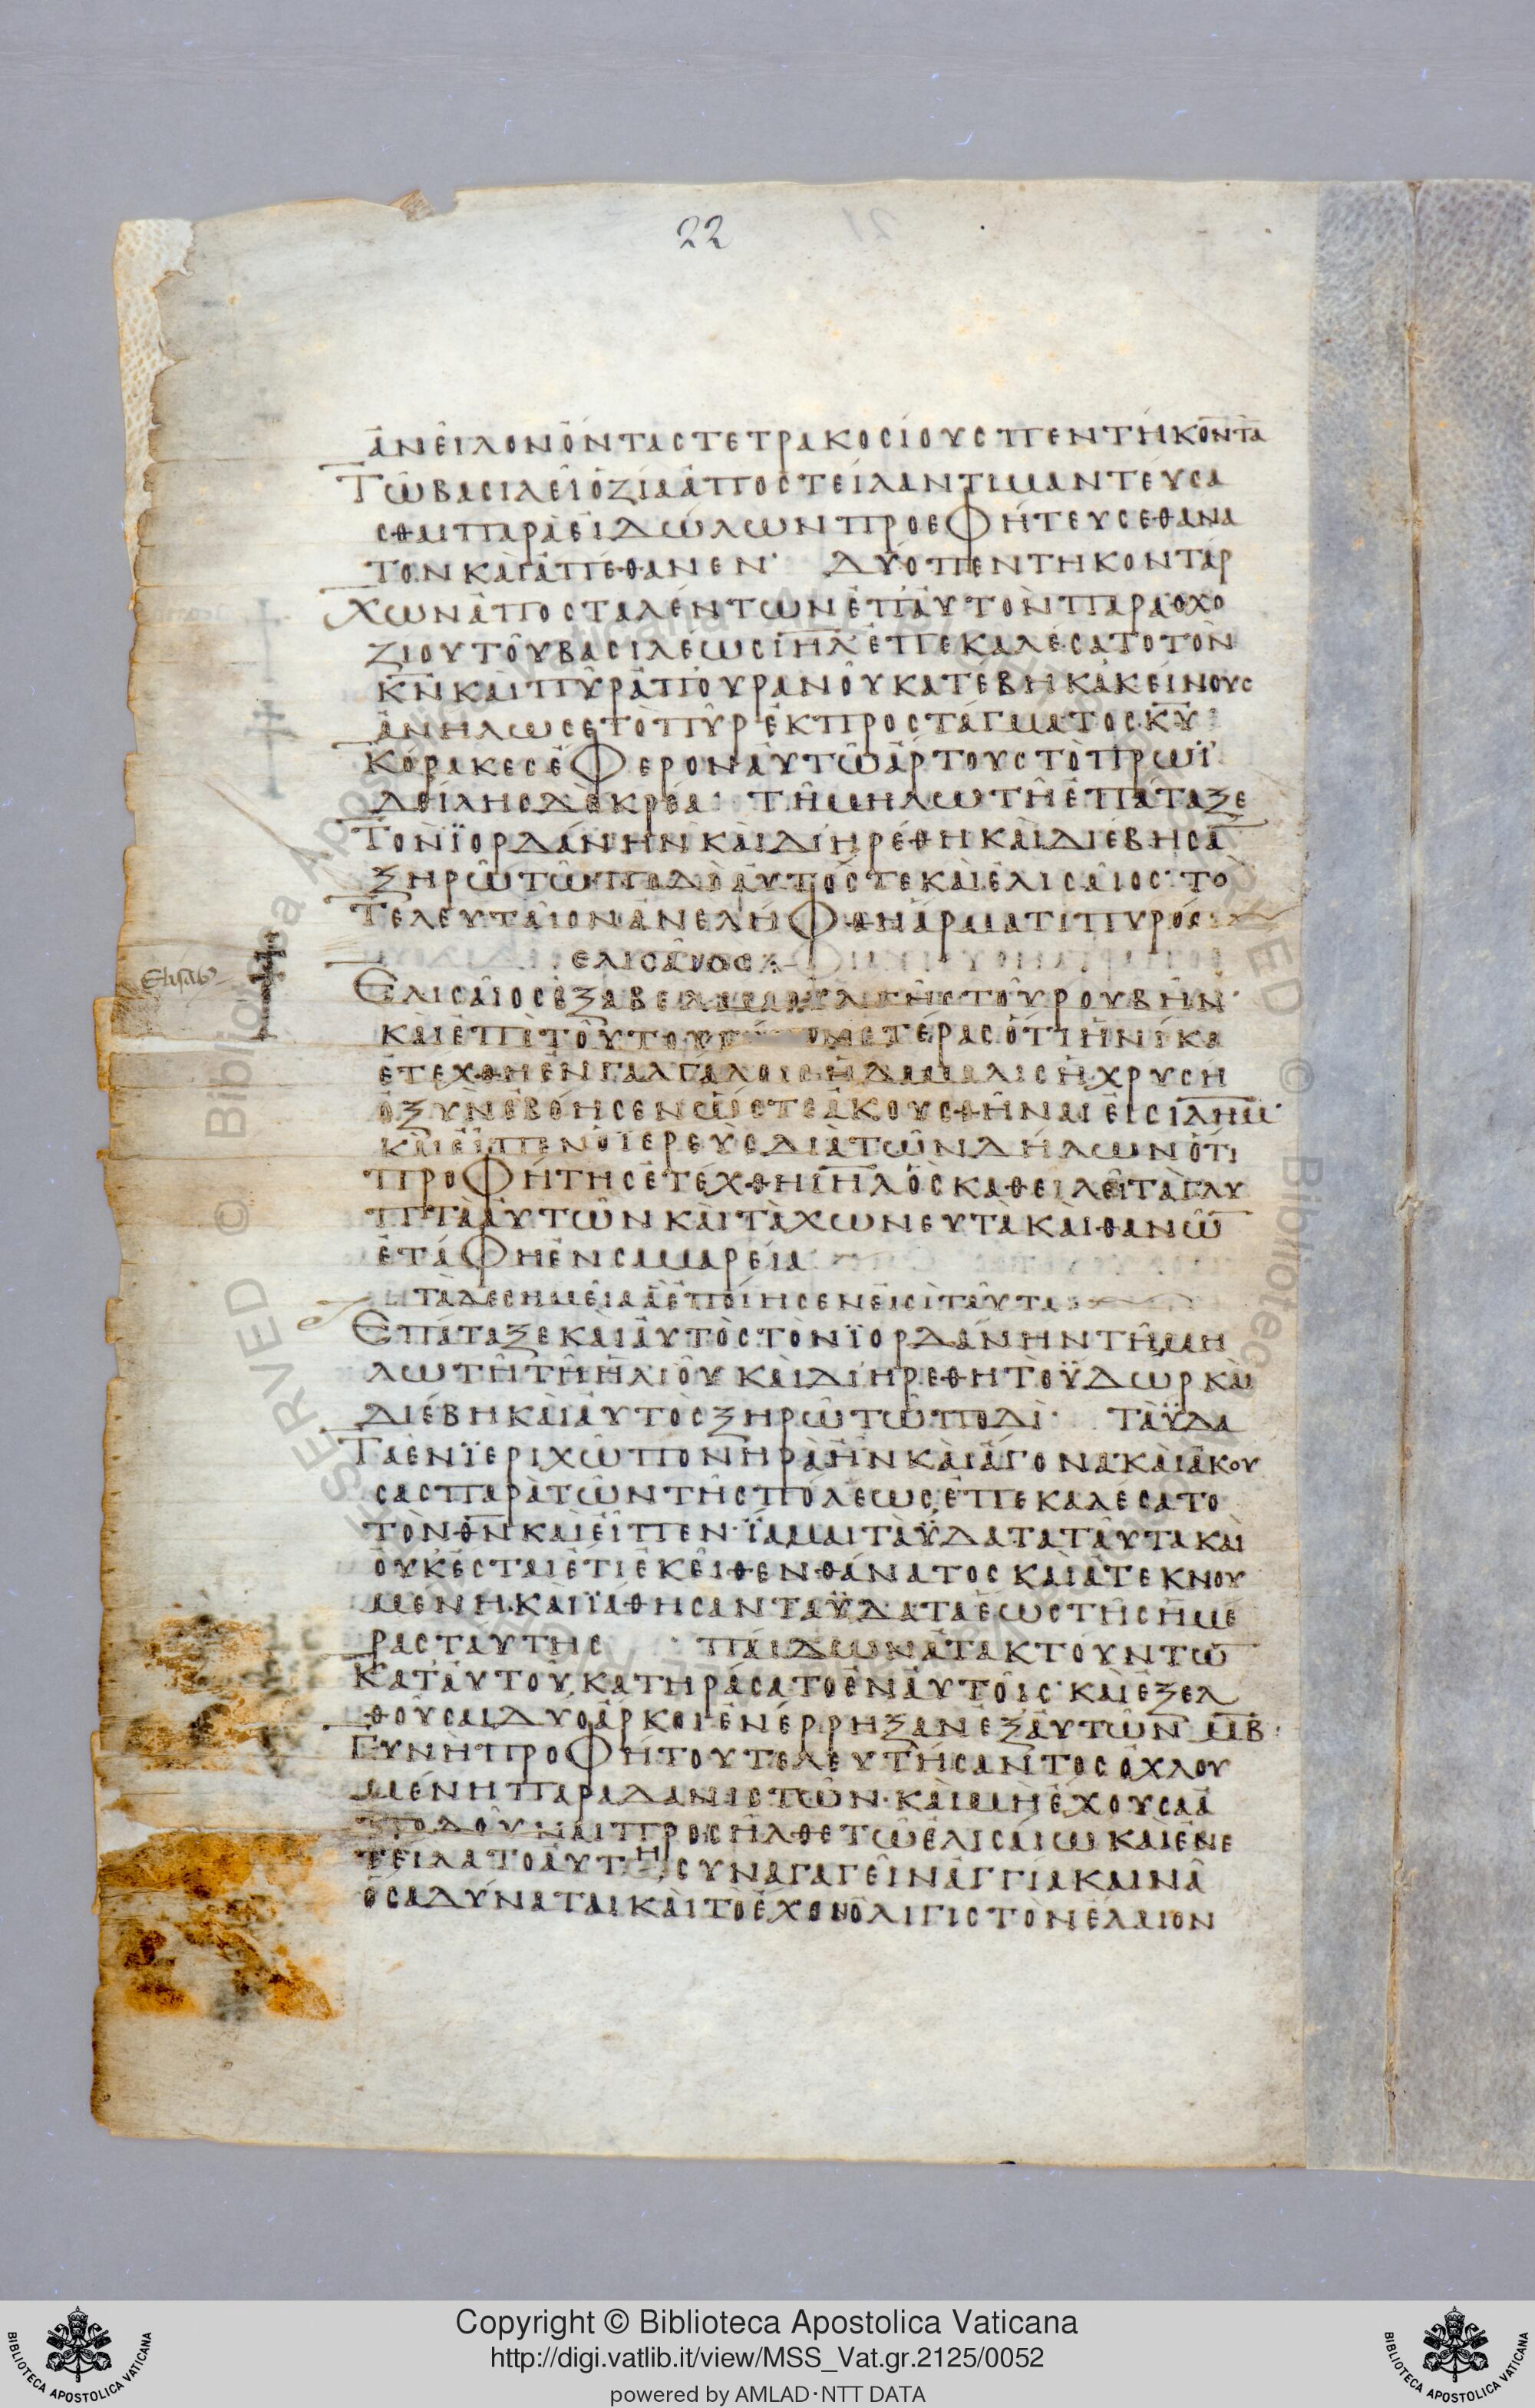 22
ἀνεῖλον ὄντας τετρακοσίους πεντήκοντα
Τῶ βασιλεῖ ὀζία ἀποστείλαντι μαντεύσα
σθαι παρὰ εἰδώλων προεφήτευσε θάνα
τον καὶ ἀπέθανεν· Δύο πεντηκοντάρ
χων ἀποσταλέντων ἐπ' αὐτὸν παρὰ ὀχο
ζίου τοῦ βασιλέως ιηλ ἐπεκαλέσατο τὸν
κν καὶ πῦρ ἀπ' οὐρανοῦ κατέβη κἀκείνους
ἀνήλωσε τὸ πῦρ ἐκ προστάγματος κυ
Κόρακες ἔφερον αὐτῶ ἄρτους τὸ πρωϊ
δείλης δὲ κρέα· Τῆ μηλωτῆ ἐπάταξε
Τὸν ϊορδάνην καὶ διηρέθη καὶ διέβησα
ξηρῶ τῶ ποδὶ αὐτός τε καὶ ἐλισαῖος· τὸ
Τελευταῖον ἀνελήφθη ἅρματι πυρός
Elisab
ελισαῖος
Ελισαῖος ἐξ ἀβελ γῆς τοῦ ρουβήν·
καὶ ἐπὶ τούτου τέρας ὅτι ἡνίκα
ἐτέχθη ἐν γαλγάλοις ἡ δάμαλις ἡ χρυσῆ
ὀξὺν ἐβόησεν ὥστε ἀκουσθῆναι εἰς ιλημ·
καὶ εἶπεν ὁ ἱερεὺς διὰ τῶν δήλων ὅτι
προφήτης ἐτέχθη ιηλ ὃς καθειλεῖ τὰ γλυ
πτὰ αὐτῶν καὶ τὰ χωνευτὰ καὶ θανῶ
ἐτάφη ἐν σαμαρεία
τὰ δὲ σημεῖα ἃ ἐποίησεν εἰσὶ ταῦτα
Επάταξε καὶ αὐτὸς τὸν ϊορδάνην τῆ μη
λωτῆ τῆ ἠλιοῦ καὶ διηρέθη τὸ ϋδωρ καὶ
διέβη καὶ αὐτὸς ξηρῶ τῶ ποδὶ· Τὰ ϋδα
Τα ἐν ϊεριχῶ πονηρὰ ἦν καὶ ἄγονα· καὶ ἀκού
σας παρὰ τῶν τῆς πόλεως ἐπεκαλέσατο
τὸν θν καὶ εἶπεν· ϊαμαι τὰ ϋδατα ταῦτα καὶ
οὐκ ἔσται ἔτι ἐκεῖθεν θάνατος καὶ ἀτεκνου
μενη· καὶ ϊάθησαν τα ϋδατα ἕως τῆς ἡμέ
ρας ταύτης παίδων ἀτακτούντω
Κατ' αὐτοῦ κατηράσατο ἐν αὐτοῖς· καὶ ἐξελ
θοῦσαι δύο ἄρκοι ἐνέρρηξαν ἐξ αὐτῶν μβ·
Γυνὴ προφήτου τελευτήσαντος ὀχλου
μένη παρὰ δανιστῶν· καὶ μὴ ἔχουσα ἀ
ποδοῦναι προσῆλθε τῶ ἐλισαίω καὶ ἐνε
τείλατο αὐτῆ συναγαγεῖν ἀγγία καινὰ
ὅσα δύναται καὶ τὸ ἔχον ὀλίγιστον ἔλαιον
Copyright © Biblioteca Apostolica Vaticana
http://digi.vatlib.it/view/MSS_Vat.gr.2125/0052
powered by AMLAD·NTT DATA
BIBLIOTECA APOSTOLICA VATICANA
BIBLIOTECA APOSTOLICA VATICANA